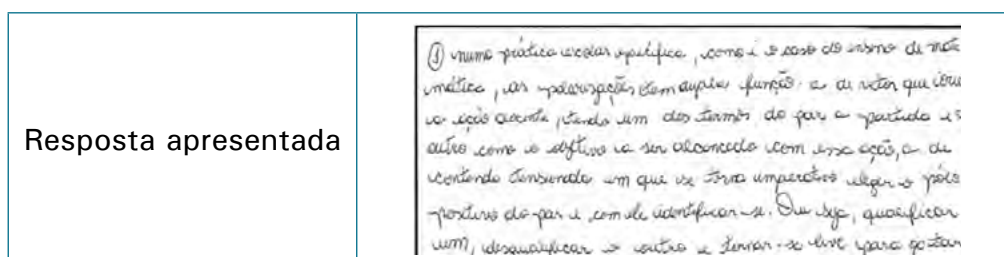 Resposta apresentada
① numa prática escolar específica, como é o caso do ensino de mate
mática, as polarizações tem dupla função: a de vetor que
a ação docente, tendo um dos termos do par a partida e
outro como o objetivo a ser alcançado com essa ação, a de
contendo tensionado em que se torna imperativo eleger o pólo
positivo do par e com ele identificar-se. Ou seja, qualificar
um, desqualificar o outro e tornar-se live para gostar